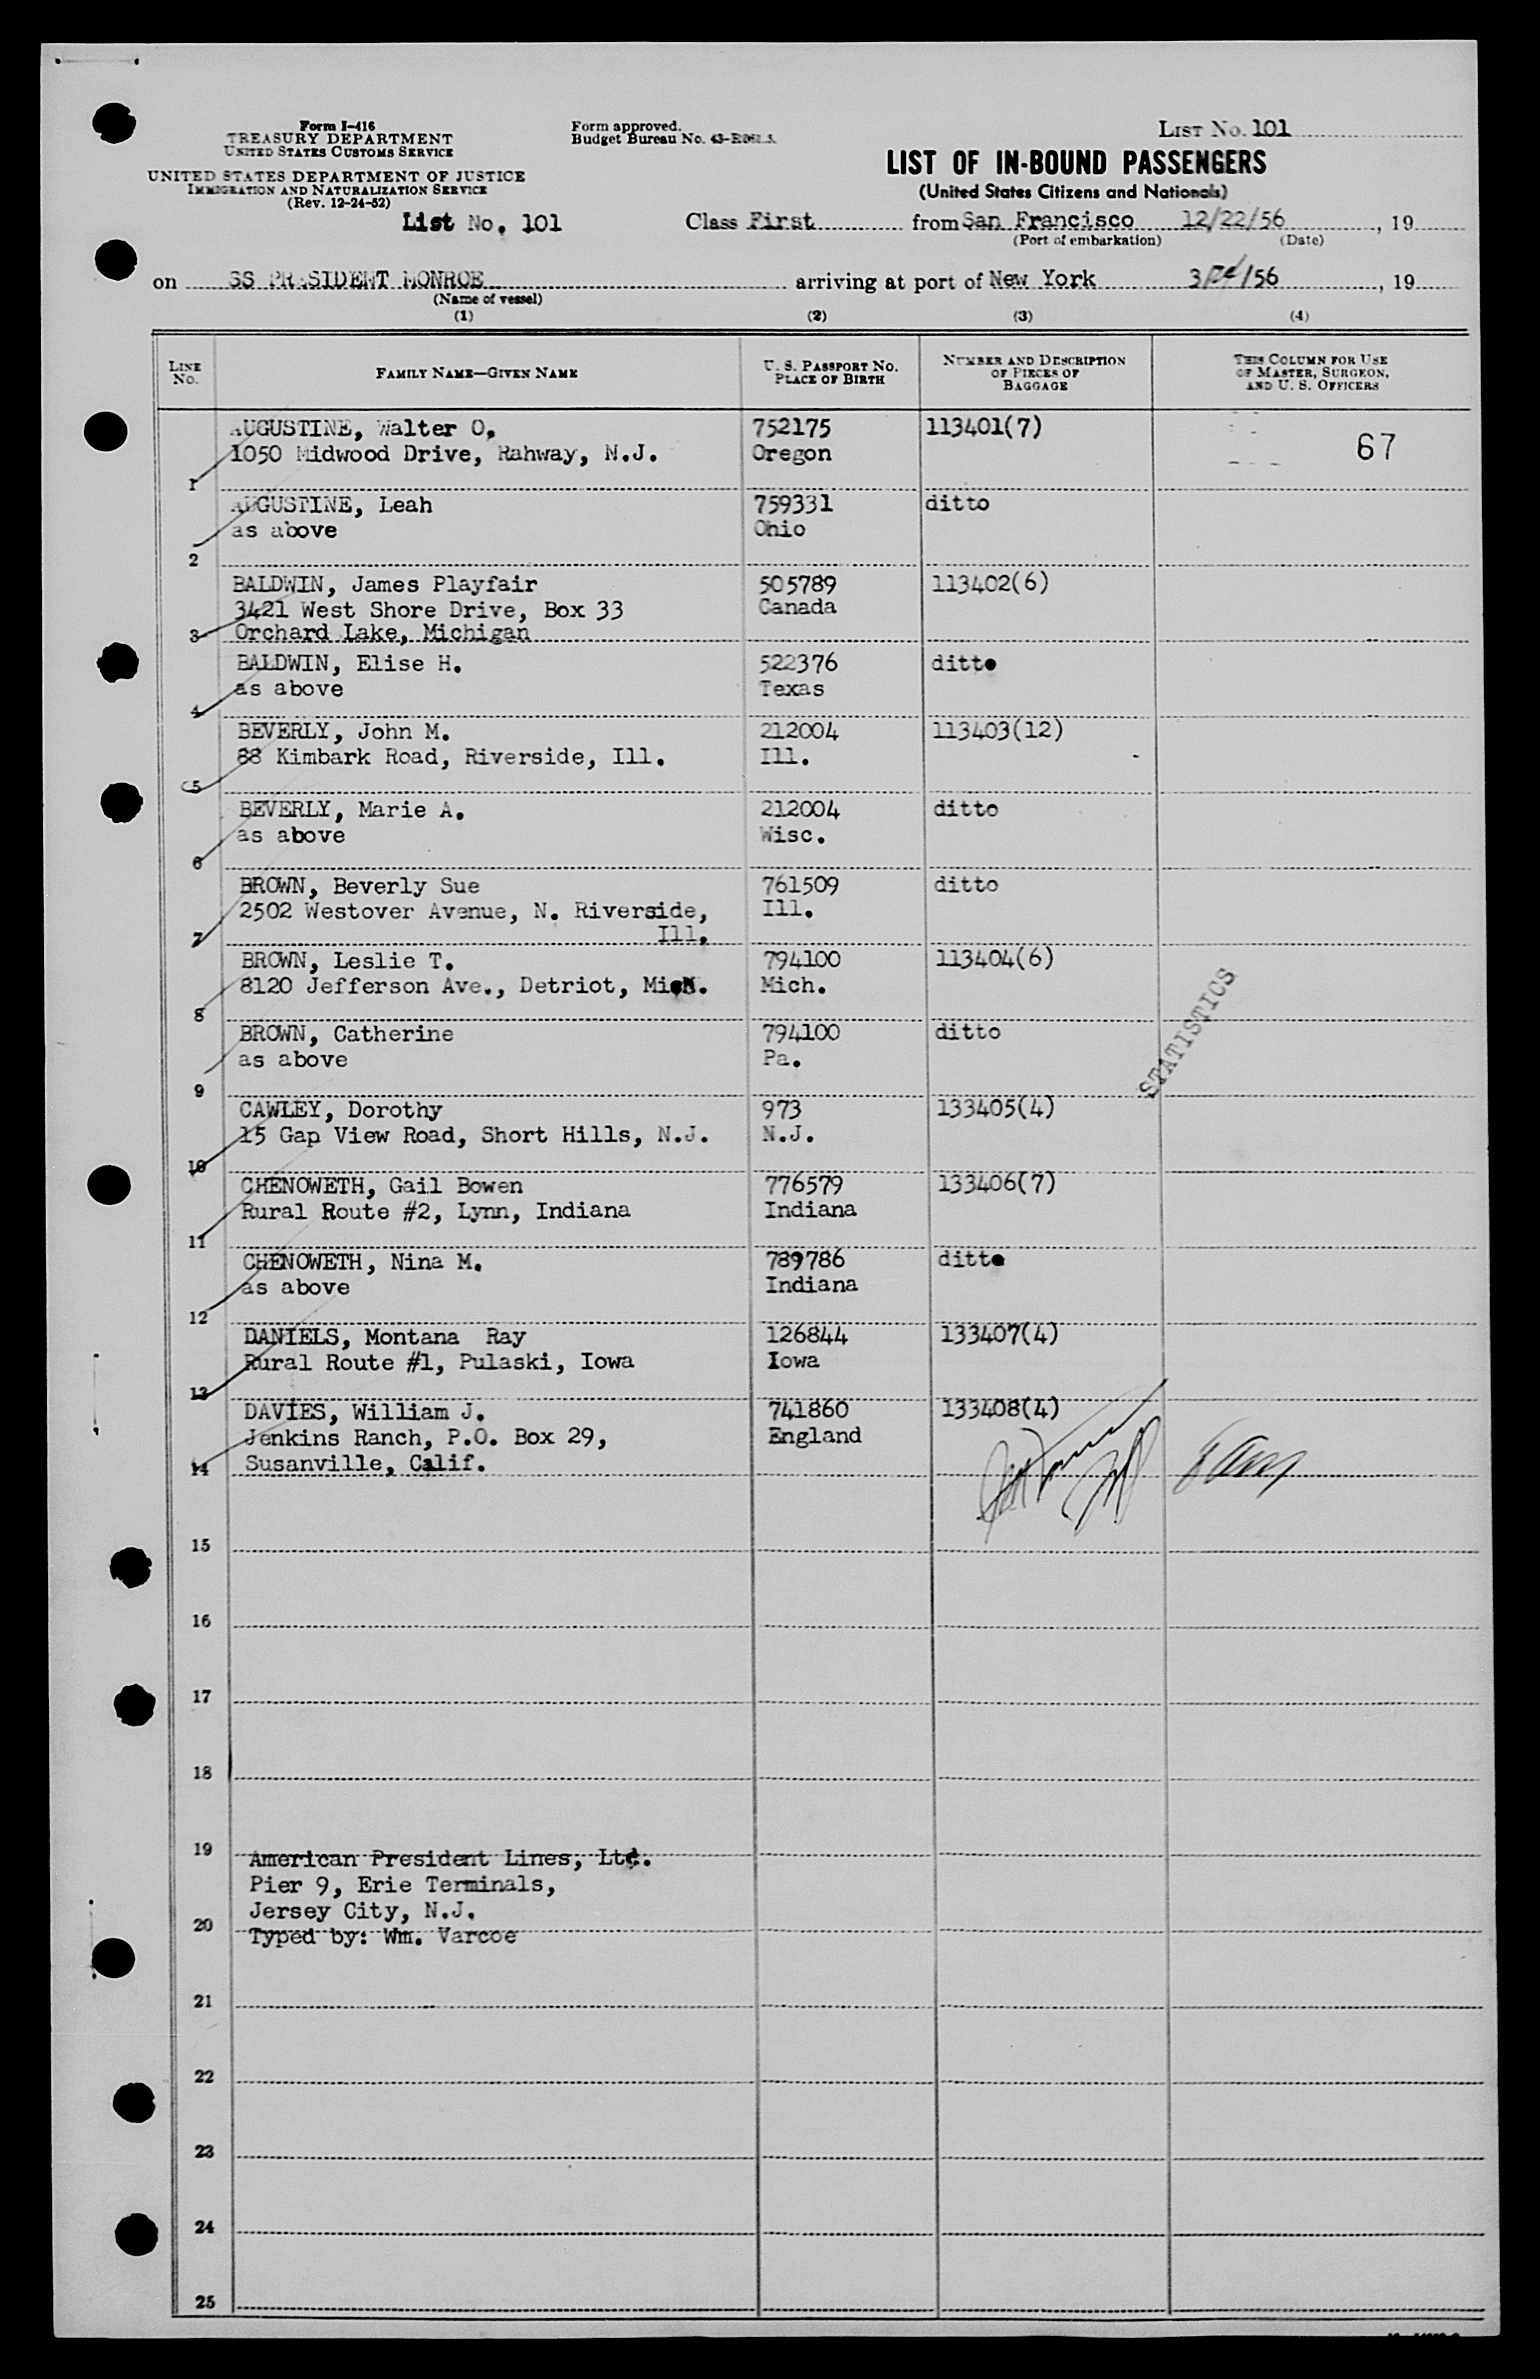 Form I-416
TREASURY DEPARTMENT
UNITED STATES CUSTOMS SERVICE
UNITED STATES DEPARTMENT OF JUSTICE
IMMIGRATION AND NATURALIZATION SERVICE
(Rev. 12-24-52)
Form approved.
Budget Bureau No.
LIST No. 101
LIST OF IN-BOUND PASSENGERS
(United States Citizens and Nationals)
List No. 101 Class First from San Francisco 12/22/56, 19
(Port of embarkation) (Date)
on SS PRESIDENT MONROE arriving at port of New York 3 /56, 19
(Name of vessel)
(1) (2) (3) (4)
LINE No. FAMILY NAME—GIVEN NAME U. S. PASSPORT No. PLACE OF BIRTH NUMBER AND DESCRIPTION OF PIECES OF BAGGAGE THIS COLUMN FOR USE OF MASTER, SURGEON, AND U. S. OFFICERS
AUGUSTINE, Walter O. 752175 113401(7)
1050 Midwood Drive, Rahway, N.J. Oregon 67
1
AUGUSTINE, Leah 759331 ditto
as above Ohio
2
BALDWIN, James Playfair 505789 113402(6)
3421 West Shore Drive, Box 33 Canada
3 Orchard Lake, Michigan
BALDWIN, Elise H. 522376 ditto
as above Texas
4
BEVERLY, John M. 212004 113403(12)
88 Kimbark Road, Riverside, Ill. Ill.
5
BEVERLY, Marie A. 212004 ditto
as above Wisc.
6
BROWN, Beverly Sue 761509 ditto
2502 Westover Avenue, N. Riverside, Ill.
7 Ill.
BROWN, Leslie T. 794100 113404(6)
8120 Jefferson Ave., Detriot, Mich. Mich.
8
BROWN, Catherine 794100 ditto
as above Pa.
9
STATISTICS
CAWLEY, Dorothy 973 133405(4)
15 Gap View Road, Short Hills, N.J. N.J.
10
CHENOWETH, Gail Bowen 776579 133406(7)
Rural Route #2, Lynn, Indiana Indiana
11
CHENOWETH, Nina M. 789786 ditto
as above Indiana
12
DANIELS, Montana Ray 126844 133407(4)
Rural Route #1, Pulaski, Iowa Iowa
13
DAVIES, William J. 741860 133408(4)
Jenkins Ranch, P.O. Box 29, England
14 Susanville, Calif.
15
16
17
18
19
American President Lines, Ltd.
Pier 9, Erie Terminals,
Jersey City, N.J.
20
Typed by: Wm. Varcoe
21
22
23
24
25